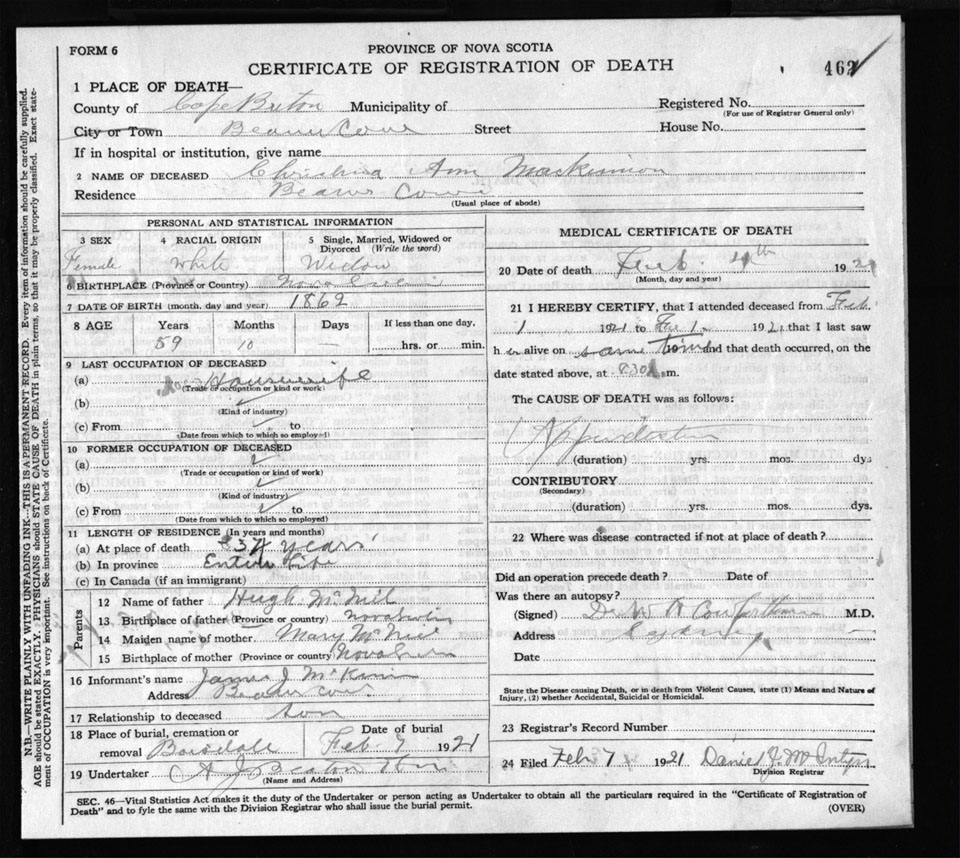 FORM 6
PROVINCE OF NOVA SCOTIA
CERTIFICATE OF REGISTRATION OF DEATH
462
1 PLACE OF DEATH—
County of Cape Breton Municipality of Registered No.
(For use of Registrar General only)
City or Town Beaver Cove Street House No.
If in hospital or institution, give name
2 NAME OF DECEASED Christina Ann Maskinnon
Residence Beaver Cove
(Usual place of abode)
PERSONAL AND STATISTICAL INFORMATION
3 SEX 4 RACIAL ORIGIN 5 Single, Married, Widowed or Divorced (Write the word)
Female White Widow
6 BIRTHPLACE (Province or Country) Nova Scotia
7 DATE OF BIRTH (month, day and year) 1862
8 AGE Years Months Days If less than one day,
59 10 — hrs. or min.
9 LAST OCCUPATION OF DECEASED
(a) Housewife
(Trade or occupation or kind or work)
(b)
(Kind of industry)
(c) From to
(Date from which to which so employed)
10 FORMER OCCUPATION OF DECEASED
(a)
(Trade or occupation or kind of work)
(b)
(Kind of industry)
(c) From to
(Date from which to which so employed)
11 LENGTH OF RESIDENCE (In years and months)
(a) At place of death years
(b) In province Entire Life
(c) In Canada (if an immigrant)
Parents
12 Name of father Hugh McNeil
13 Birthplace of father (Province or country) Nova Scotia
14 Maiden name of mother Mary McNeil
15 Birthplace of mother (Province or country) Nova Scotia
16 Informant's name James J McKinnon
Address Beaver Cove
17 Relationship to deceased son
18 Place of burial, cremation or removal Boisdale
Date of burial Feb 7 1921
19 Undertaker A J Beaton
(Name and Address)
MEDICAL CERTIFICATE OF DEATH
20 Date of death Feb. 4th 1921
(Month, day and year)
21 I HEREBY CERTIFY, that I attended deceased from Feb
1 1921 to Feb 1 1921 that I last saw
her alive on same time and that death occurred, on the
date stated above, at 830 m.
The CAUSE OF DEATH was as follows:
(duration) yrs. mos. dys
CONTRIBUTORY
(Secondary)
(duration) yrs. mos. dys.
22 Where was disease contracted if not at place of death?
Did an operation precede death? Date of
Was there an autopsy?
(Signed) Dr M.D.
Address Sydney
Date
State the Disease causing Death, or in death from Violent Causes, state (1) Means and Nature of
Injury, (2) whether Accidental, Suicidal or Homicidal.
23 Registrar's Record Number
24 Filed Feb 7 1921 Daniel J. McIntyre
Division Registrar
SEC. 46—Vital Statistics Act makes it the duty of the Undertaker or person acting as Undertaker to obtain all the particulars required in the "Certificate of Registration of
Death" and to fyle the same with the Division Registrar who shall issue the burial permit.
(OVER)
N.B.—WRITE PLAINLY WITH UNFADING INK—THIS IS A PERMANENT RECORD. Every item of information should be carefully supplied.
AGE should be stated EXACTLY. PHYSICIANS should STATE CAUSE OF DEATH in plain terms, so that it may be properly classified. Exact state-
ment of OCCUPATION is very important. See instructions on back of Certificate.